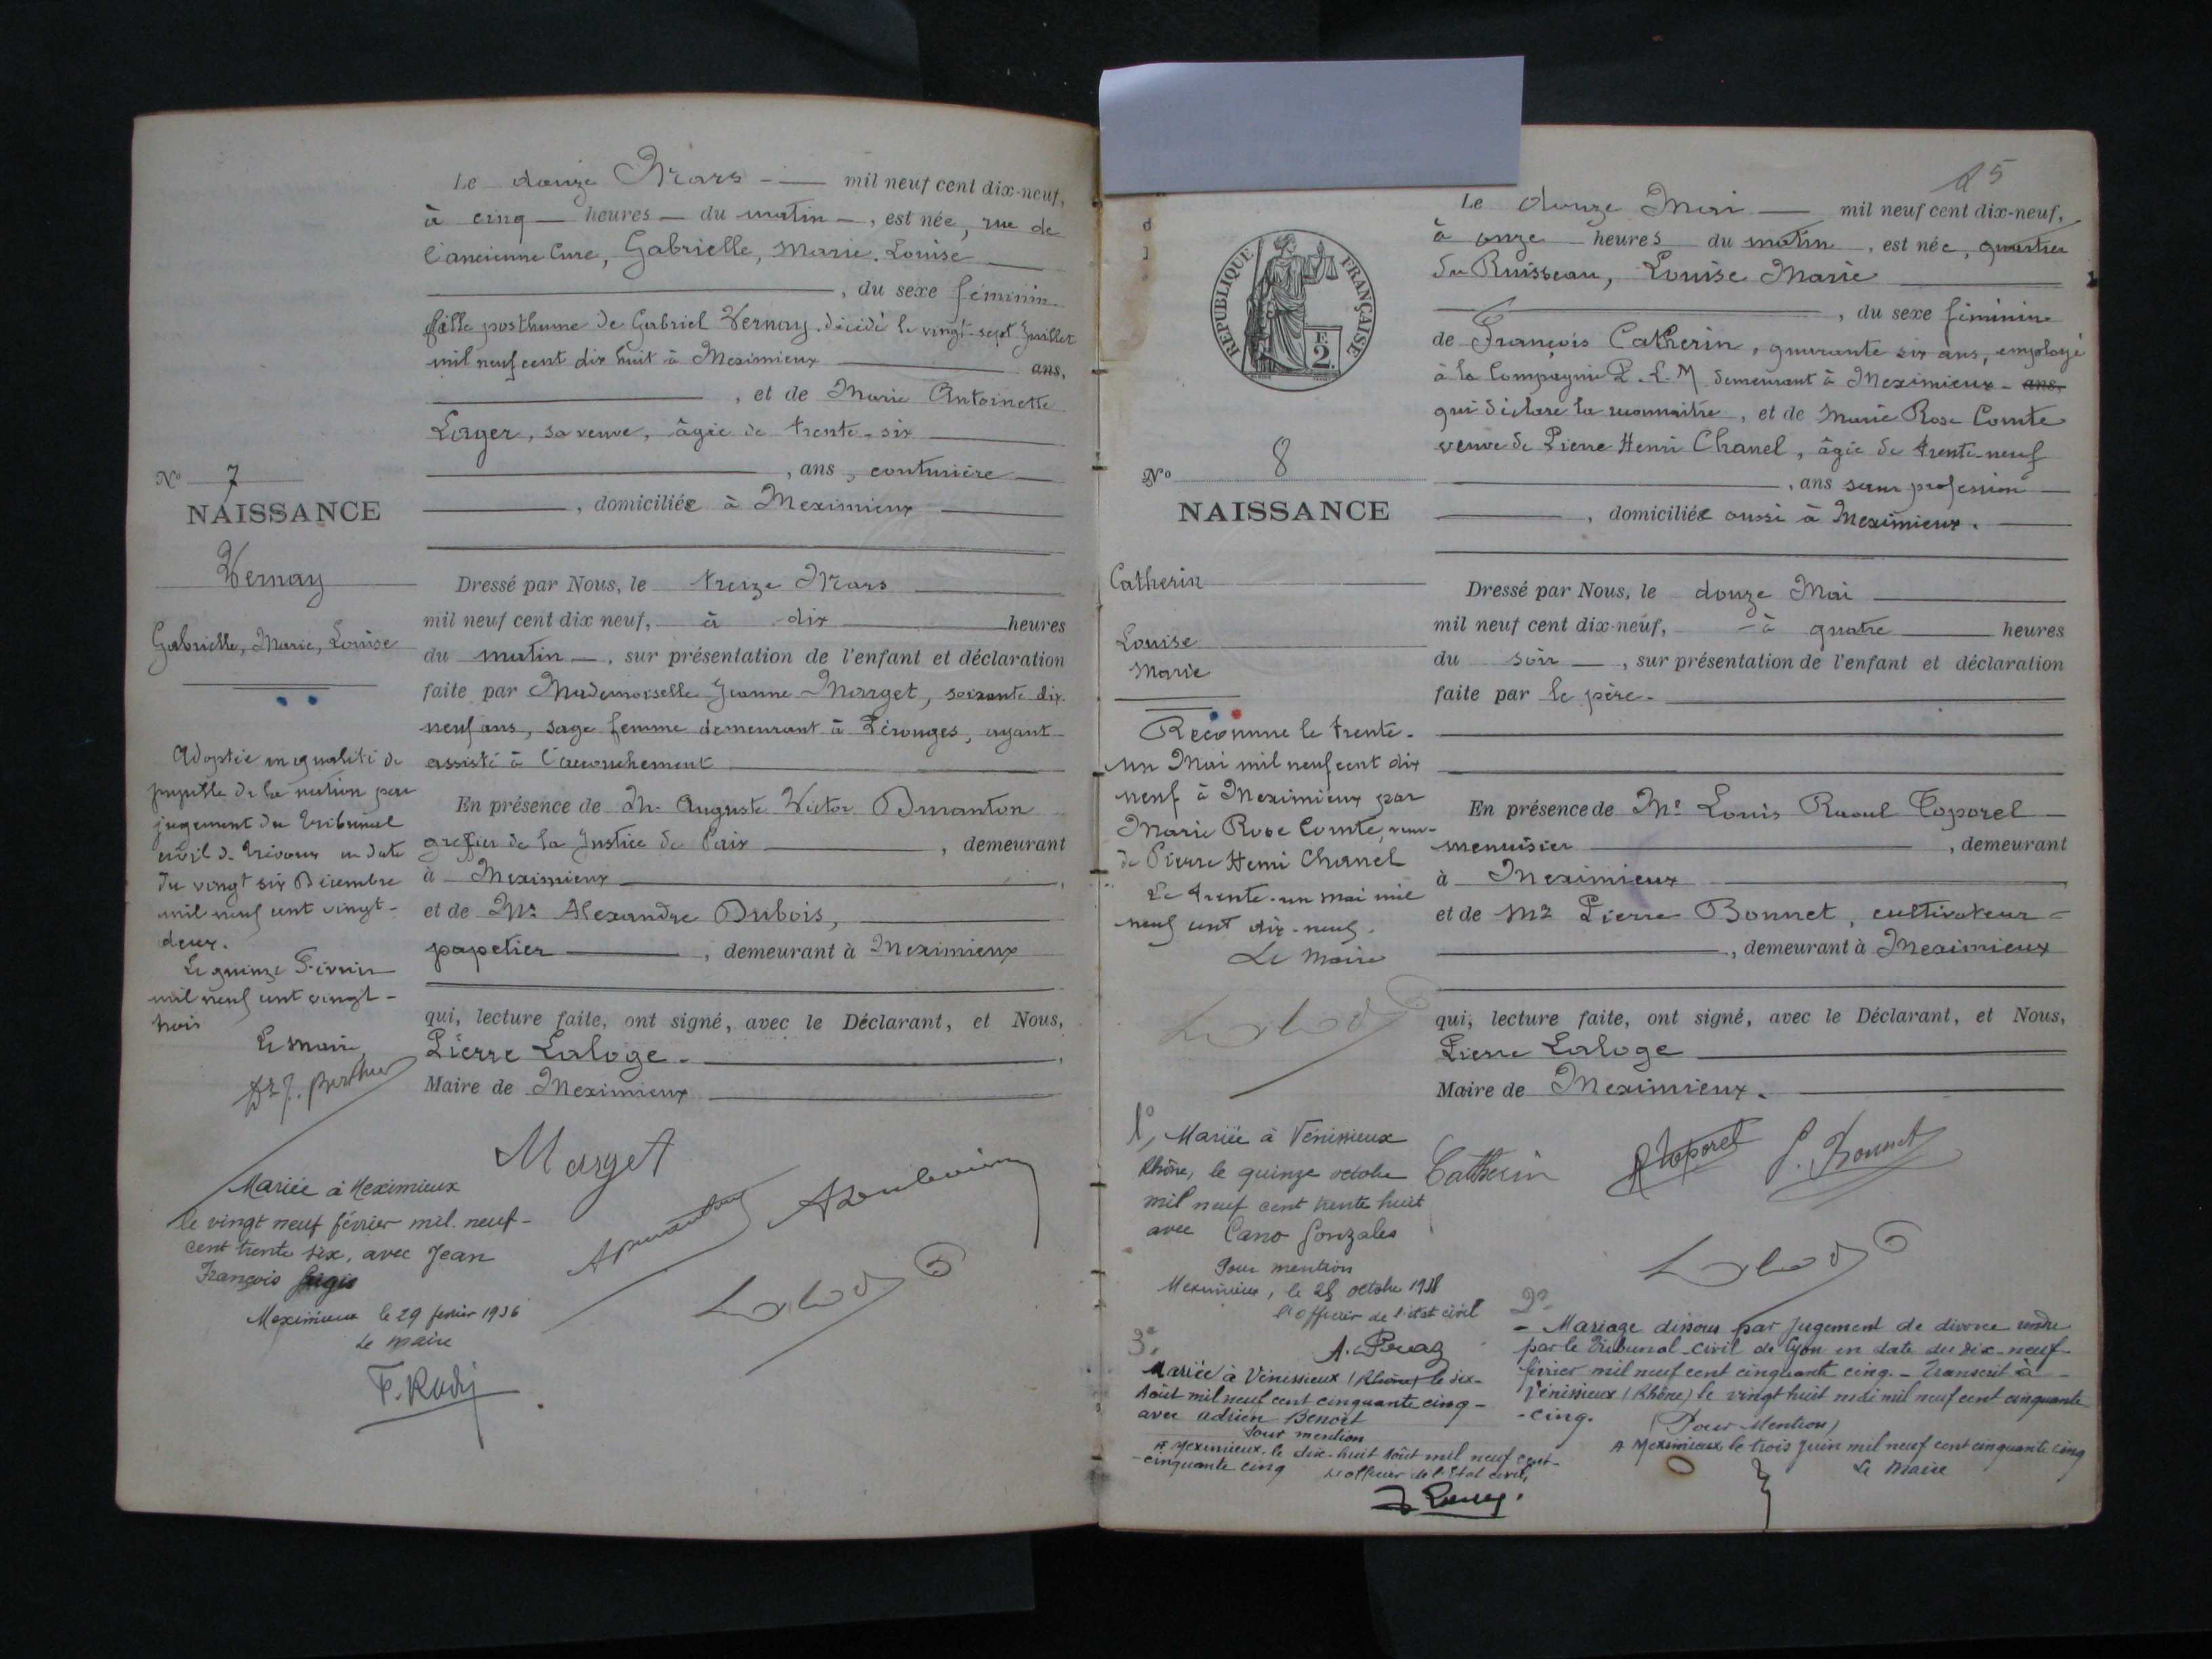 Le douze Mars mil neuf cent dix-neuf,
à cinq heures du matin, est née, rue de
l'ancienne Cure, Gabrielle, Marie, Louise
, du sexe féminin
fille posthume de Gabriel Vernay, décédé le vingt-sept Juillet
mil neuf cent dix huit à Meximieux ans,
, et de Marie Antoinette
Loyer, sa veuve, âgée de trente-six
, ans, couturière
, domiciliée à Meximieux
Dressé par Nous, le treize Mars
mil neuf cent dix neuf, à dix heures
du matin, sur présentation de l'enfant et déclaration
faite par Mademoiselle Jeanne Marget, soixante dix
neuf ans, sage femme demeurant à Pérouges, ayant
assisté à l'accouchement
En présence de Mr Auguste Victor Duranton
greffier de la Justice de Paix, demeurant
à Meximieux,
et de Mr Alexandre Dubois,
papetier, demeurant à Meximieux
qui, lecture faite, ont signé, avec le Déclarant, et Nous,
Pierre Laloge.
Maire de Meximieux
Marget
No 7
NAISSANCE
Vernay
Gabrielle, Marie, Louise
Adoptée en qualité de
pupille de la nation par
jugement du Tribunal
civil de Trévoux en date
du vingt six Décembre
mil neuf cent vingt-
deux.
Le quinze Février
mil neuf cent vingt-
trois
Le maire
Mariée à Meximieux
le vingt neuf février mil neuf-
cent trente six, avec Jean
François
Meximieux le 29 février 1936
Le maire
15
Le douze Mai mil neuf cent dix-neuf,
à onze heures du matin, est née, quartier
du Ruisseau, Louise Marie
, du sexe féminin
de François Catherin, quarante six ans, employé
à la Compagnie P.L.M demeurant à Meximieux - ans,
qui déclare la reconnaître, et de Marie Rose Comte
veuve de Pierre Henri Chanel, âgée de trente-neuf
, ans sans profession
, domiciliée aussi à Meximieux.
Dressé par Nous, le douze Mai
mil neuf cent dix-neuf, à quatre heures
du soir, sur présentation de l'enfant et déclaration
faite par le père.
En présence de Mr Louis Raoul Toporel
menuisier, demeurant
à Meximieux
et de Mr Pierre Bonnet, cultivateur
, demeurant à Meximieux
qui, lecture faite, ont signé, avec le Déclarant, et Nous,
Pierre Laloge
Maire de Meximieux.
Catherin
Toporel
P. Bonnet
RÉPUBLIQUE FRANÇAISE
F.
2.
No 8
NAISSANCE
Catherin
Louise
Marie
Reconnue le trente-
un Mai mil neuf cent dix
neuf à Meximieux par
Marie Rose Comte, veuve
de Pierre Henri Chanel
Le trente-un mai mil
neuf cent dix-neuf.
Le Maire
1°, Mariée à Vénissieux
Rhône, le quinze octobre
mil neuf cent trente huit
avec Cano Gonzales
Pour mention
Meximieux, le 25 octobre 1938
l'officier de l'état civil
2°
- Mariage dissous par jugement de divorce rendu
par le Tribunal civil de Lyon en date du dix-neuf
février mil neuf cent cinquante cinq. - Transcrit à
Vénissieux (Rhône) le vingt huit mai mil neuf cent cinquante
-cinq. (Pour Mention)
A Meximieux le trois juin mil neuf cent cinquante cinq
Le Maire
3°,
Mariée à Vénissieux (Rhône) le six-
août mil neuf cent cinquante cinq -
avec Adrien Benoit
Pour mention
A Meximieux, le dix-huit août mil neuf cent-
-cinquante cinq L'officier de l'Etat civil,